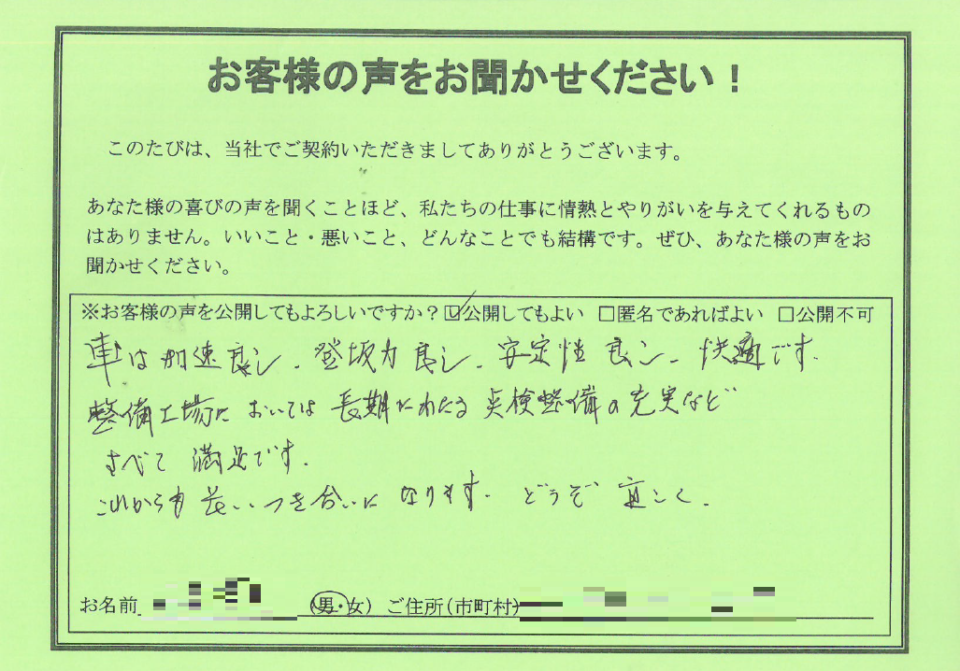 お客様の声をお聞かせください！
このたびは、当社でご契約いただきましてありがとうございます。
あなた様の喜びの声を聞くことほど、私たちの仕事に情熱とやりがいを与えてくれるもの
はありません。いいこと・悪いこと、どんなことでも結構です。ぜひ、あなた様の声をお
聞かせください。
※お客様の声を公開してもよろしいですか？☑公開してもよい □匿名であればよい □公開不可
車は加速良し、登坂力良し、安定性良し、快適です。
整備工場においては長期にわたる点検整備の充実など
すべて満足です。
これからも長いつき合いになります。どうぞ宜しく。
お名前 (男・女) ご住所(市町村)